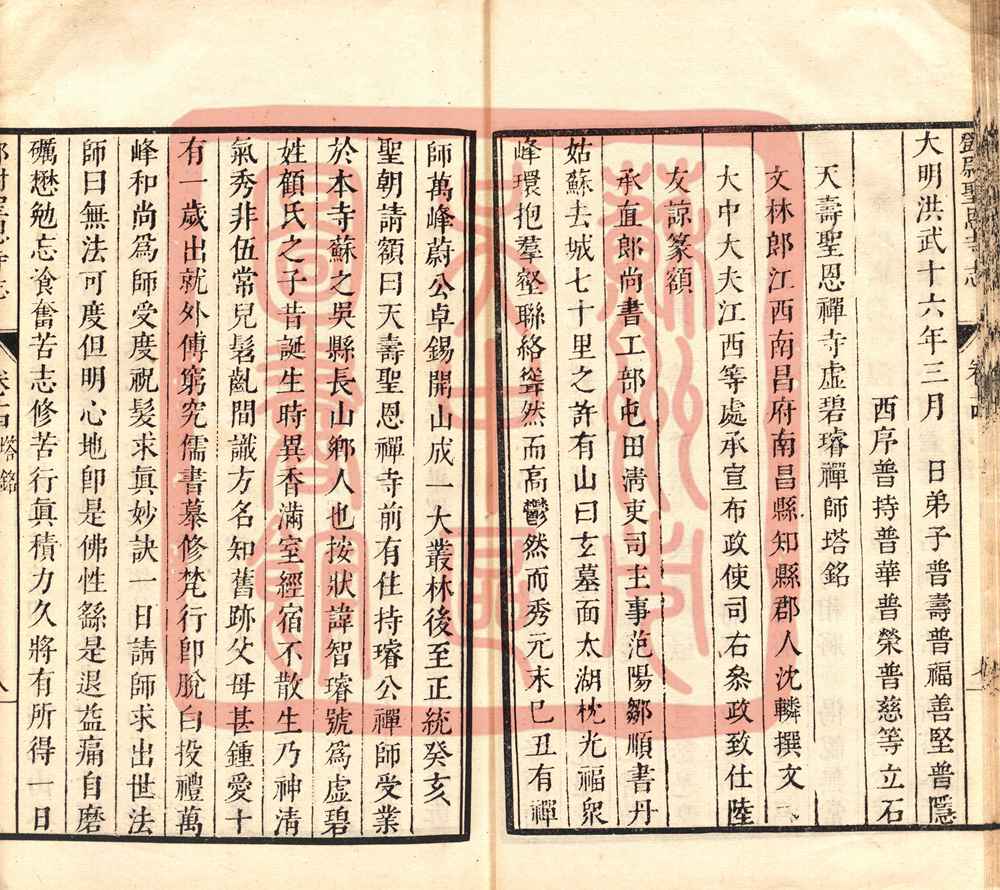 鄧尉聖恩寺志
卷十四
大明洪武十六年三月　日弟子普壽普福善堅普隱
西序普持普華普榮普慈等立石
天壽聖恩禪寺虛碧璿禪師塔銘
文林郎江西南昌府南昌縣知縣郡人沈轔撰文
大中大夫江西等處承宣布政使司右叅政致仕陸
友諒篆額
承直郎尚書工部屯田淸吏司主事范陽鄒順書丹
姑蘇去城七十里之許有山曰玄墓面太湖枕光福衆
峰環抱羣壑聯絡聳然而高鬱然而秀元末己丑有禪
師萬峰蔚公卓錫開山成一大叢林後至正統癸亥
聖朝請額曰天壽聖恩禪寺前有住持璿公禪師受業
於本寺蘇之吳縣長山鄉人也按狀諱智璿號爲虛碧
姓顧氏之子昔誕生時異香滿室經宿不散生乃神淸
氣秀非伍常兒髫齓間識方名知舊跡父母甚鍾愛十
有一歲出就外傅窮究儒書慕修梵行卽脫白投禮萬
峰和尚爲師受度祝髮求眞妙訣一日請師求出世法
師曰無法可度但明心地卽是佛性繇是退益痛自磨
礪懋勉忘湌奮苦志修苦行眞積力久將有所得一日
鄧尉聖恩寺志
卷十四塔銘
八